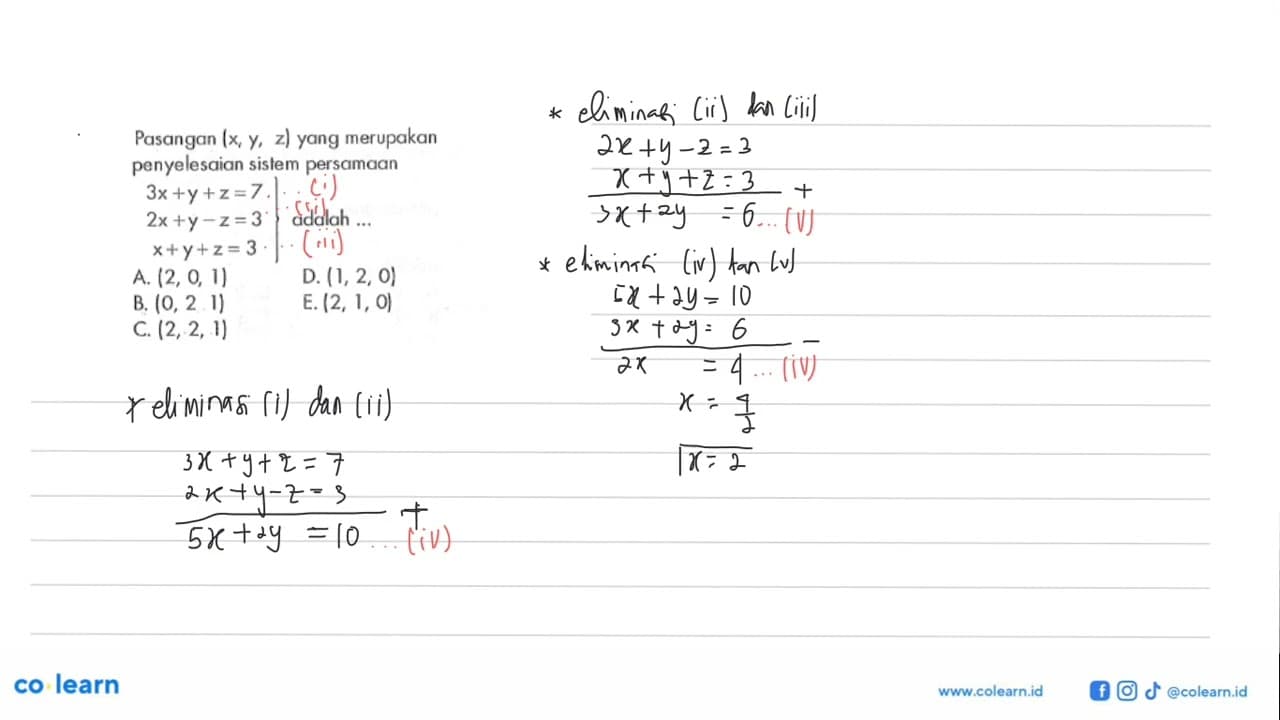 Pasangan (x, y, z) yang merupakan
penyelesaian sistem persamaan
3x + y + z = 7 ... (i)
2x + y - z = 3 ... (ii) adalah ...
x + y + z = 3 ... (iii)
A. (2, 0, 1) D. (1, 2, 0)
B. (0, 2 1) E. (2, 1, 0)
C. (2, 2, 1)
* eliminasi (i) dan (ii)
3x + y + z = 7
2x + y - z = 3
+
5x + 2y = 10 ... (iv)
* eliminasi (ii) dan (iii)
2x + y - z = 3
x + y + z = 3
+
3x + 2y = 6 ... (v)
* eliminasi (iv) dan (v)
5x + 2y = 10
3x + 2y = 6
-
2x = 4 ... (iv)
x = 4/2
x = 2
co learn
www.colearn.id
@colearn.id